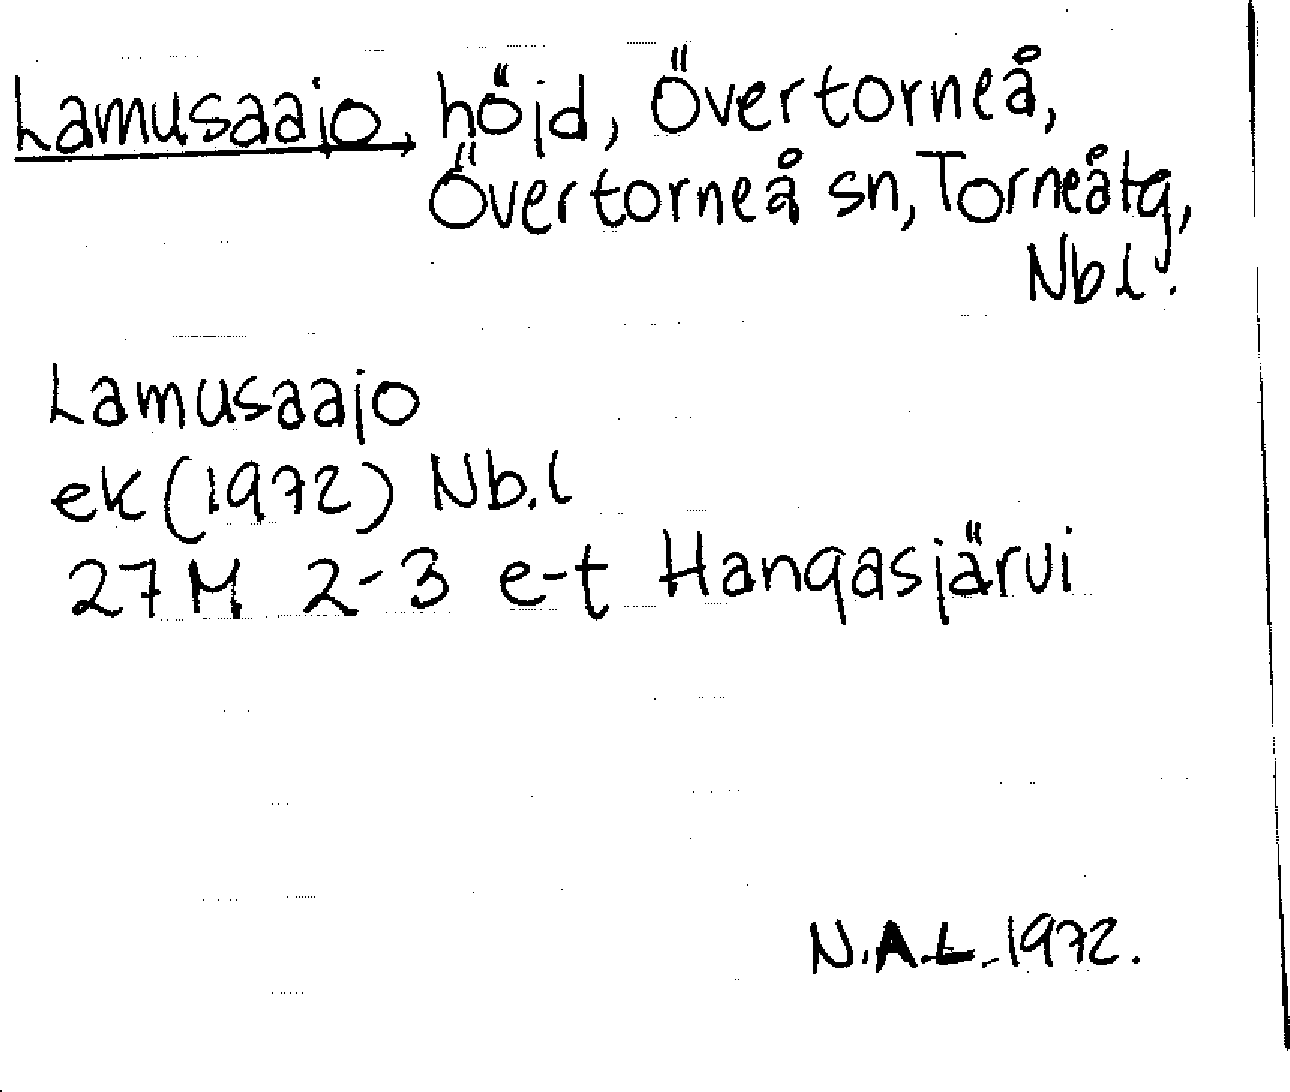 Lamusaajo, höjd, Övertorneå,
Övertorneå sn, Torneåtg,
Nb.l.
Lamusaajo
ek (1972) Nb.l
27M 2-3 e-t Hangasjärvi
N.A.L. 1972.